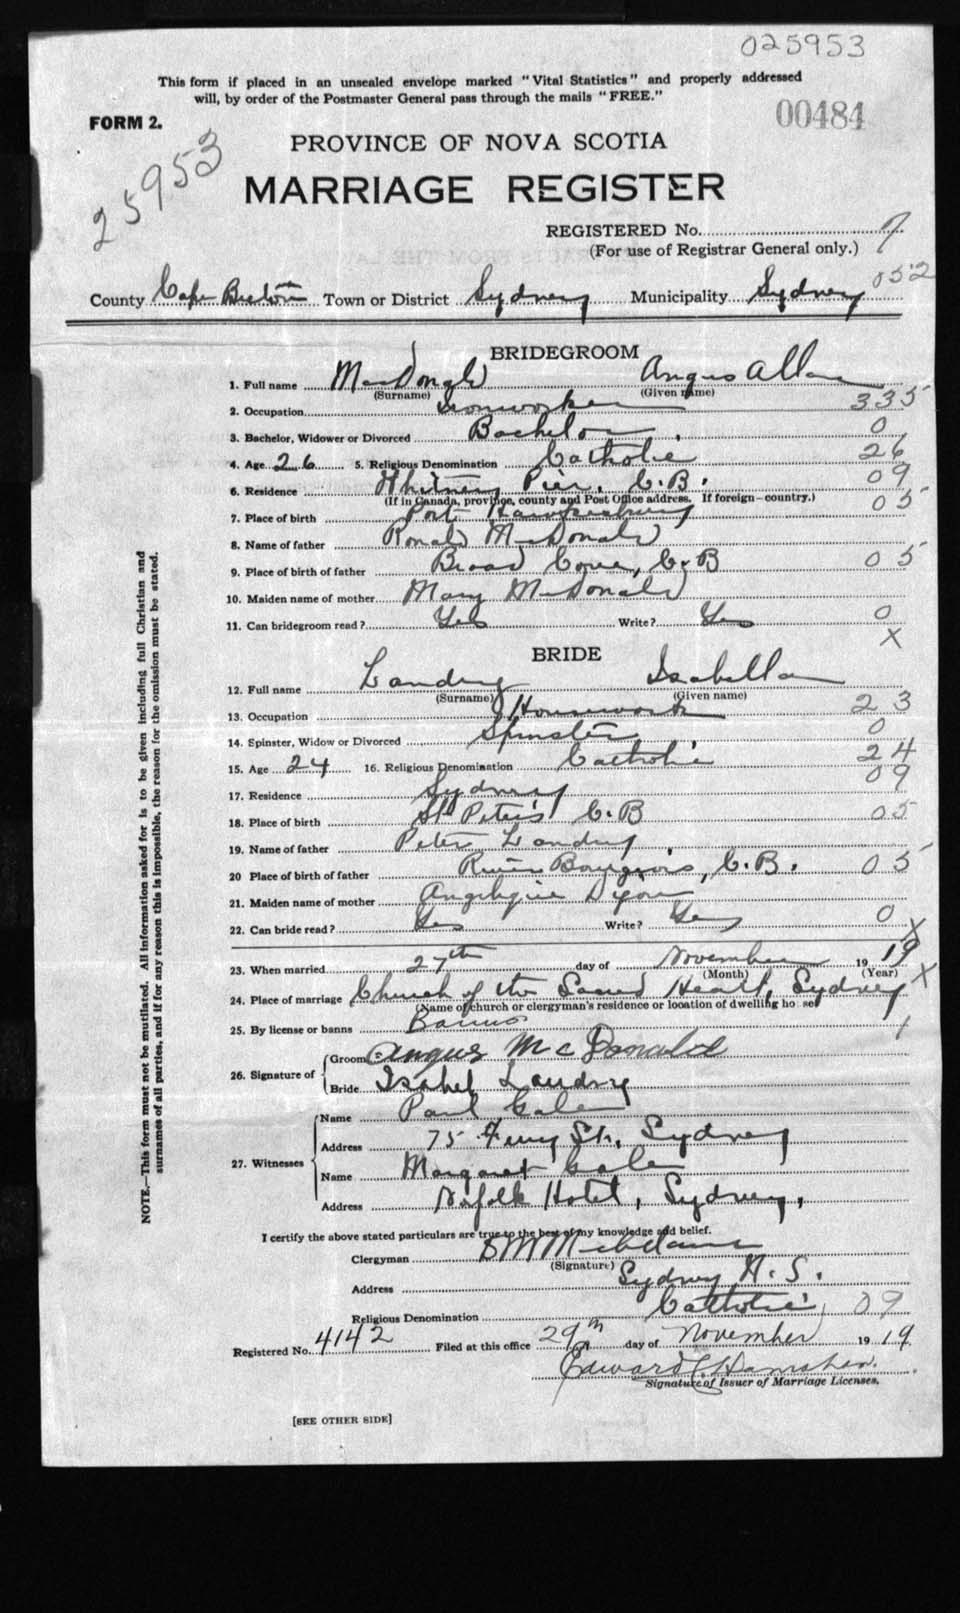 025953
This form if placed in an unsealed envelope marked "Vital Statistics" and properly addressed
will, by order of the Postmaster General pass through the mails "FREE."
FORM 2.
00484
25953
PROVINCE OF NOVA SCOTIA
MARRIAGE REGISTER
REGISTERED No. 7
(For use of Registrar General only.)
052
County Cape Breton Town or District Sydney Municipality Sydney
BRIDEGROOM
1. Full name MacDonald Angus Allan
(Surname) (Given name)
2. Occupation Ironworker 335
3. Bachelor, Widower or Divorced Bachelor 0
4. Age 26 5. Religious Denomination Catholic 26
6. Residence Whitney Pier, C.B. 09
(If in Canada, province, county and Post Office address. If foreign—country.)
7. Place of birth Port Hawkesbury 05
8. Name of father Ronald McDonald
9. Place of birth of father Broad Cove, C.B 05
10. Maiden name of mother Mary McDonald
11. Can bridegroom read? Yes Write? Yes 0
X
BRIDE
12. Full name Landry Isabella
(Surname) (Given name)
13. Occupation Housework 23
14. Spinster, Widow or Divorced Spinster 0
15. Age 24 16. Religious Denomination Catholic 24
17. Residence Sydney 09
18. Place of birth St Peter's C.B 05
19. Name of father Peter Landry
20 Place of birth of father River Bourgeois, C.B. 05
21. Maiden name of mother Angelique
22. Can bride read? Yes Write? Yes 0
X
23. When married 27th day of November 1919
(Month) (Year)
24. Place of marriage Church of the Sacred Heart, Sydney X
(Name of church or clergyman's residence or location of dwelling house)
25. By license or banns Banns 1
26. Signature of Groom Angus McDonald
Bride Isabel Landry
27. Witnesses
Name Paul Gale
Address 75 Ferry St., Sydney
Name Margaret Gale
Address Norfolk Hotel, Sydney,
I certify the above stated particulars are true to the best of my knowledge and belief.
Clergyman
(Signature)
Address Sydney N.S.
Religious Denomination Catholic 09
Registered No. 4142 Filed at this office 29th day of November 1919
Edward C Hanrahan.
Signature of Issuer of Marriage Licenses.
[SEE OTHER SIDE]
NOTE.—This form must not be mutilated. All information asked for is to be given including full Christian and
surnames of all parties, and if for any reason this is impossible, the reason for the omission must be stated.